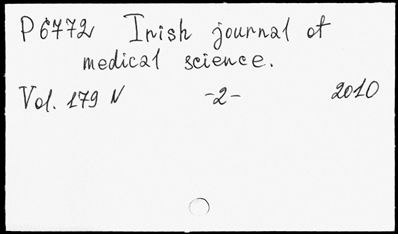 P6772 Irish journal of
medical science.
Vol. 179 N -2- 2010